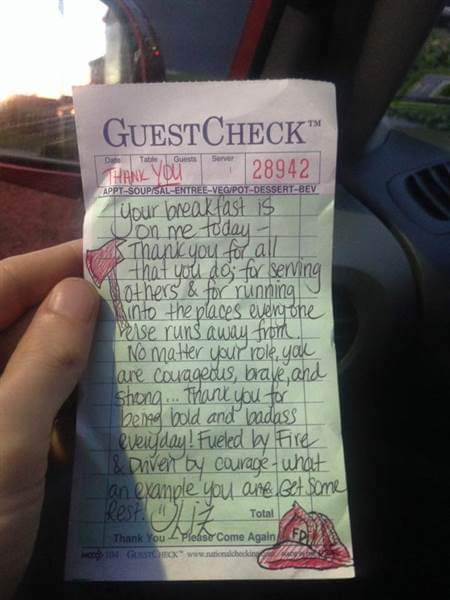 GUESTCHECK™
Date Table Guests Server
THANK YOU 28942
APPT-SOUP/SAL-ENTREE-VEG/POT-DESSERT-BEV
Your breakfast is
on me today -
Thank you for all
that you do; for serving
others & for running
into the places everyone
else runs away from.
No matter your role, you
are courageous, brave, and
strong... Thank you for
being bold and badass
everyday! Fueled by Fire
& Driven by courage - what
an example you are. Get some
Rest. Liz
Total
FD
Thank You Please Come Again
104 GUESTCHECK™